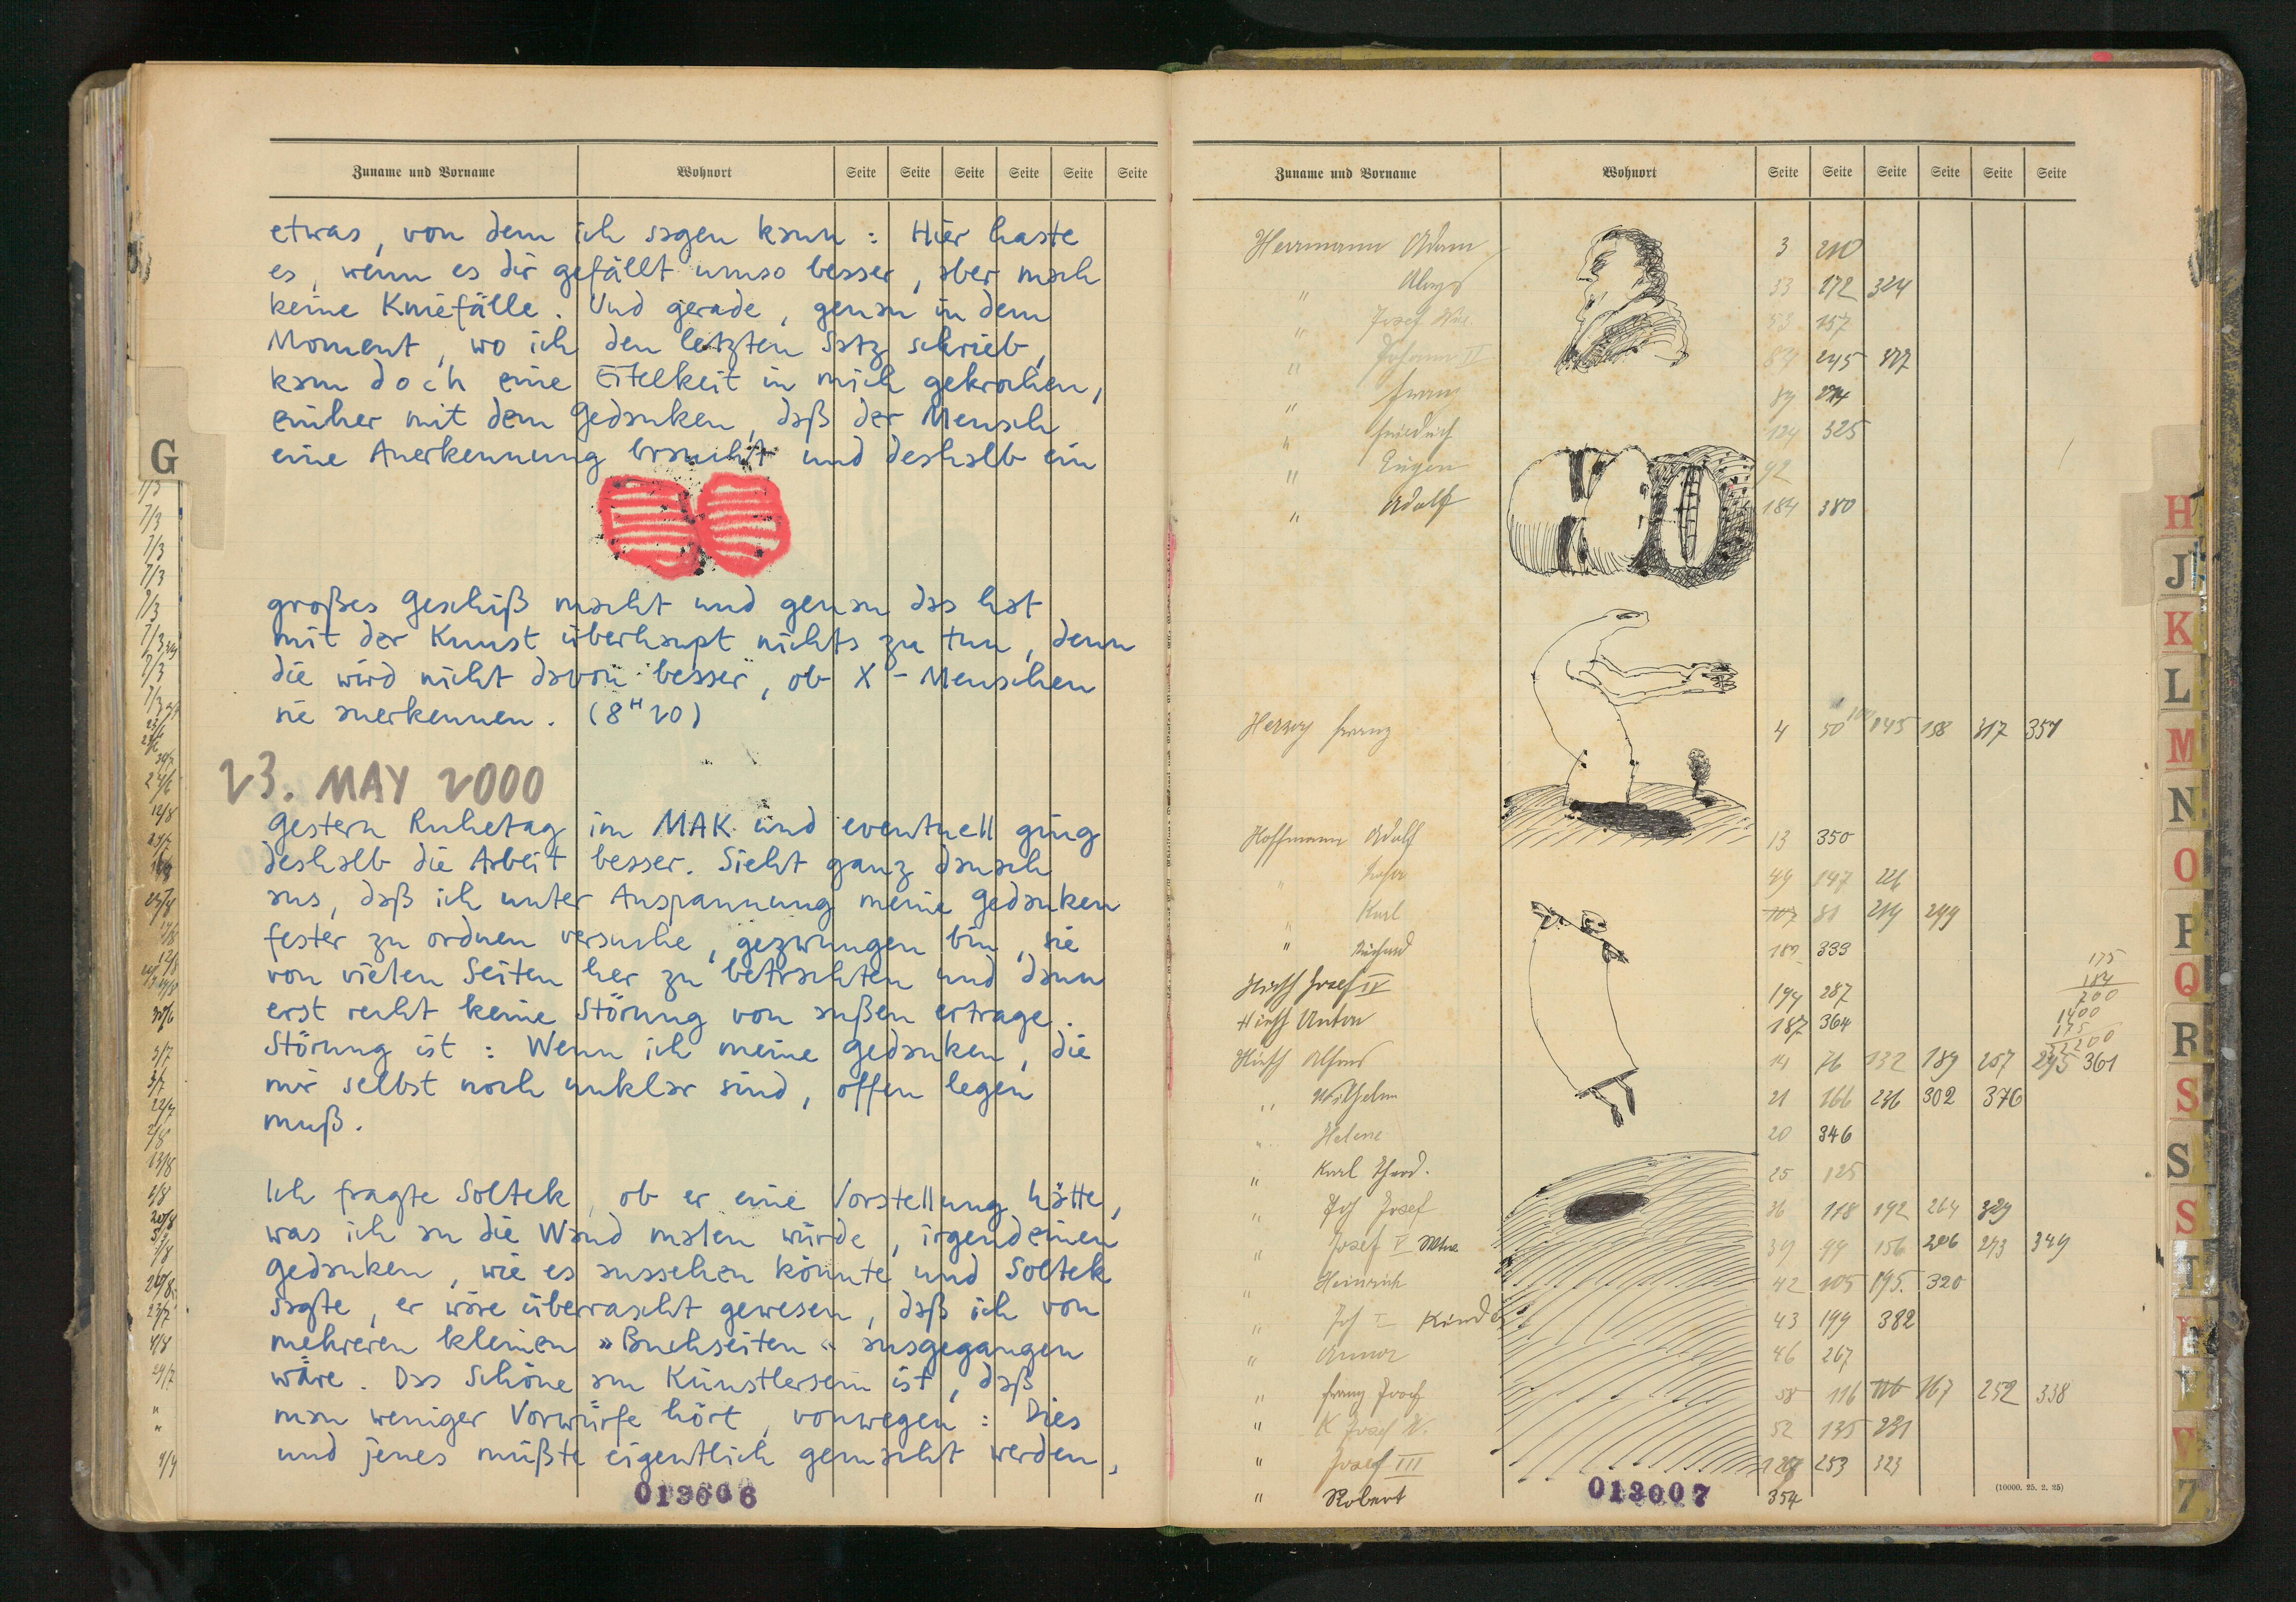 Zuname und Vorname Wohnort Seite Seite Seite Seite Seite Seite
etwas, von dem ich sagen kann: Hier haste
es, wenn es dir gefällt umso besser, aber mach
keine Kniefälle. Und gerade, genau in dem
Moment, wo ich den letzten Satz schrieb,
kam doch eine Eitelkeit in mich gekrochen,
einher mit dem Gedanken, daß der Mensch
eine Anerkennung braucht und deshalb ein
großes Geschiß macht und genau das hat
mit der Kunst überhaupt nichts zu tun, denn
die wird nicht davon besser, ob X-Menschen
sie anerkennen. (8H20)
23. MAY 2000
Gestern Ruhetag im MAK und eventuell ging
deshalb die Arbeit besser. Sieht ganz danach
aus, daß ich unter Anspannung meine Gedanken
fester zu ordnen versuche, gezwungen bin, sie
von vielen Seiten her zu betrachten und dann
erst recht keine Störung von außen ertrage.
Störung ist: Wenn ich meine Gedanken, die
mir selbst noch unklar sind, offen legen
muß.
Ich fragte Soltek, ob er eine Vorstellung hätte,
was ich an die Wand malen würde, irgendeinen
Gedanken, wie es aussehen könnte und Soltek
sagte, er wäre überrascht gewesen, daß ich von
mehreren kleinen »Buchseiten« ausgegangen
wäre. Das Schöne am Künstlersein ist, daß
man weniger Vorwürfe hört, vonwegen: Dies
und jenes müßte eigentlich gemacht werden,
013006
G
Zuname und Vorname Wohnort Seite Seite Seite Seite Seite Seite
Herrmann Adam 3 210
" Aloys 53 172 324
" Josef 157
" Johann II 245 317
" Franz 89
" Friedrich 124 325
" Eugen 92
" Adolf 184 380
Herzog Franz 4 50 145 158 317 351
Hoffmann Adolf 13 350
" 49 147
" Karl 107 81 214 299
" Richard 333
Hirth Josef IV 194 287
Hirth Anton 187 364
Hirth Alfons 14 76 132 189 257 295 361
" Wilhelm 21 166 236 302 376
" Helene 20 346
" Karl 25 125
" Joh Josef 36 118 192 264 329
" Josef V 39 99 156 206 273 349
" Heinrich 42 105 195. 320
" Joh I 43 199 382
" Anna 46 267
" Franz Josef 58 116 167 252 338
" K Josef 52 135 231
" Josef III 253 323
" Robert 354
175
184
700
1400
175
013007
(10000. 25. 2. 25)
H
J
K
L
M
N
O
P
Q
R
S
S
S
T
V
Z